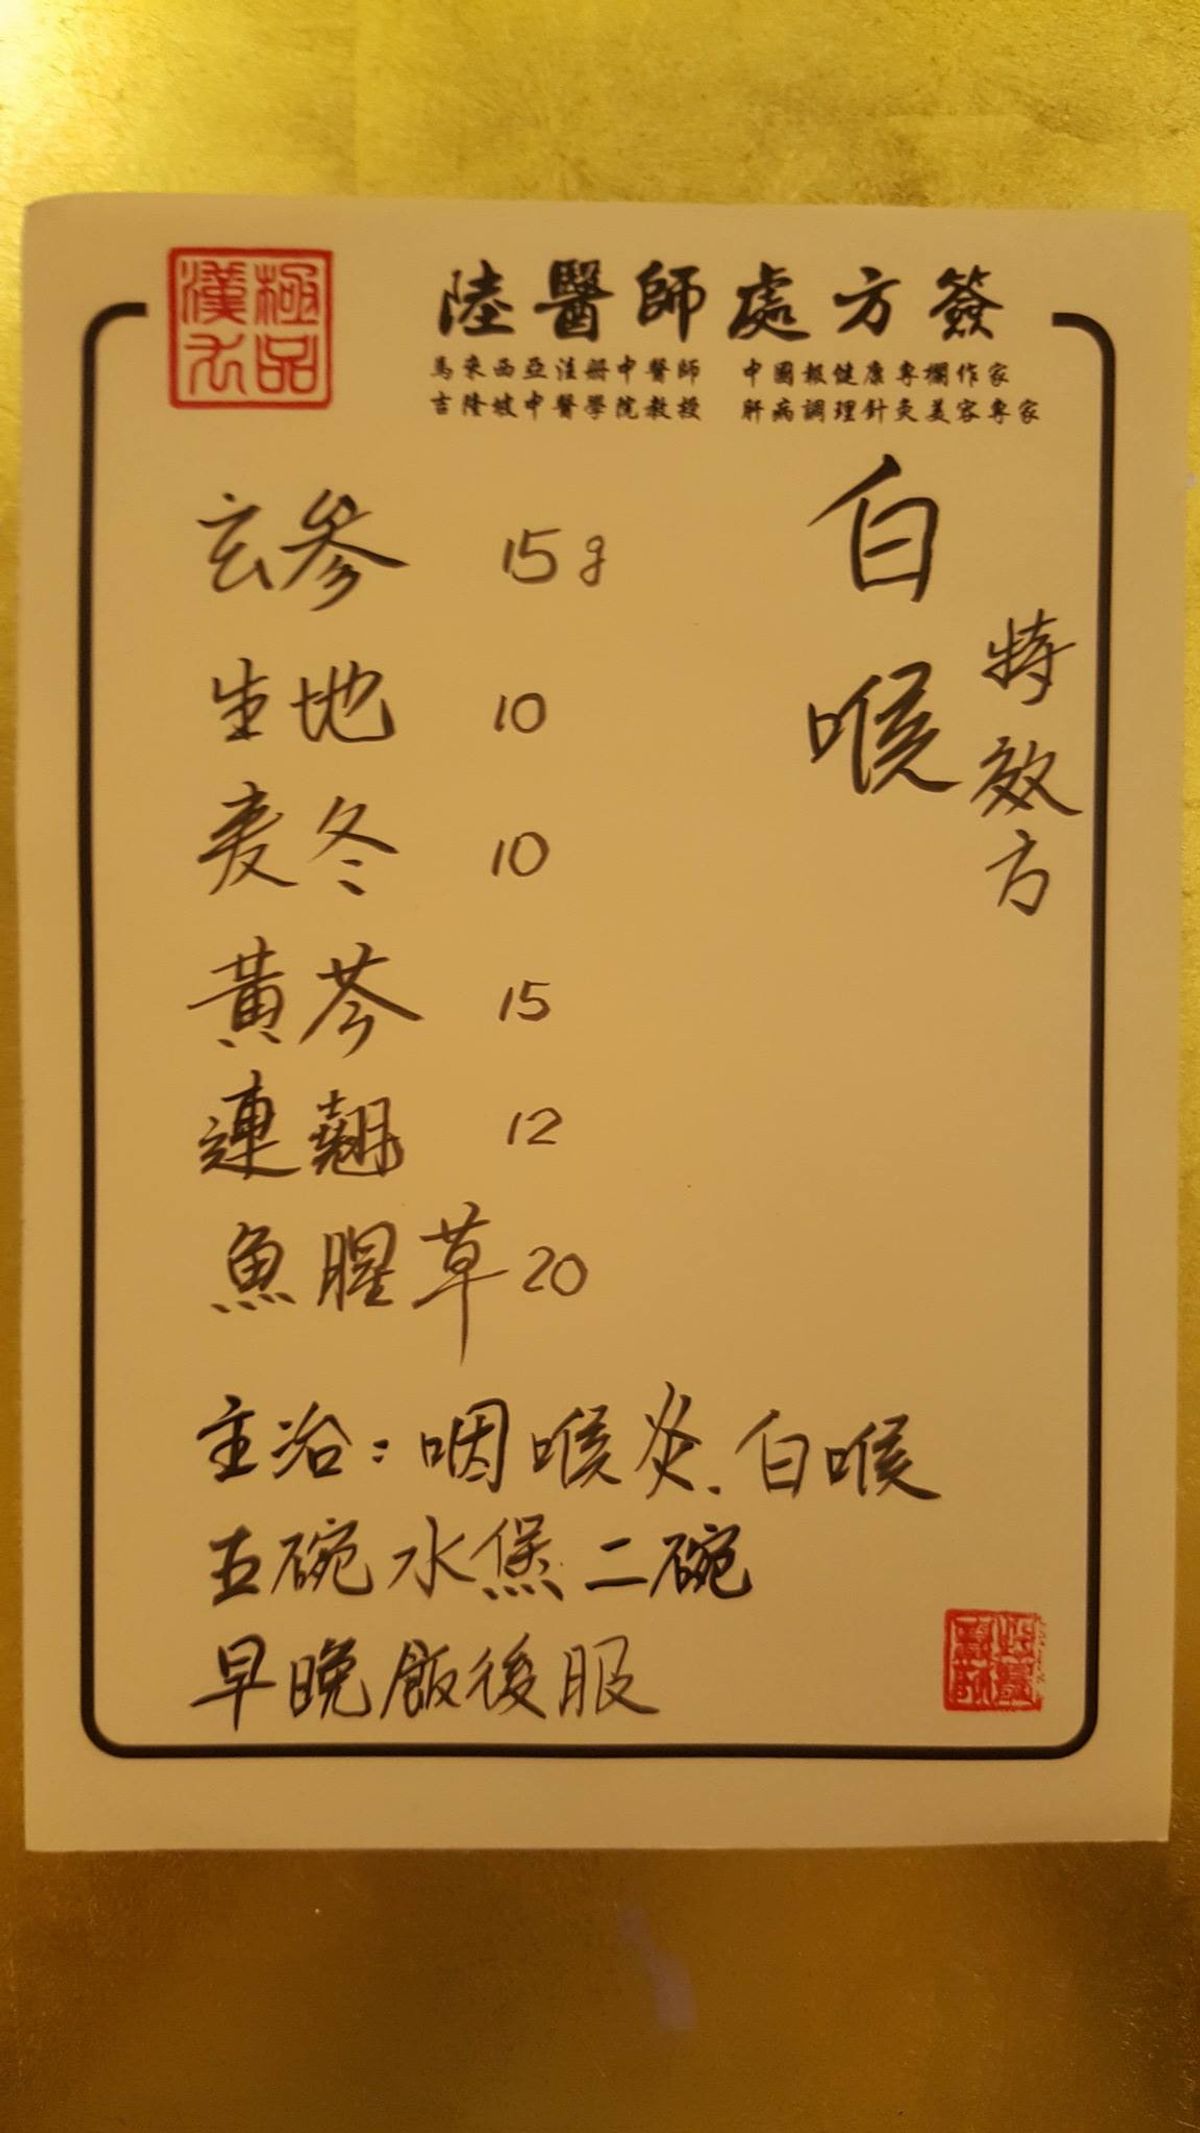 極品
漢方
陸醫師處方簽
馬來西亞注冊中醫師 中國報健康專欄作家
吉隆坡中醫學院教授 肝病調理針灸美容專家
白喉
特效方
玄參 15g
生地 10
麥冬 10
黃芩 15
連翹 12
魚腥草 20
主治：咽喉炎.白喉
五碗水煲二碗
早晚飯後服